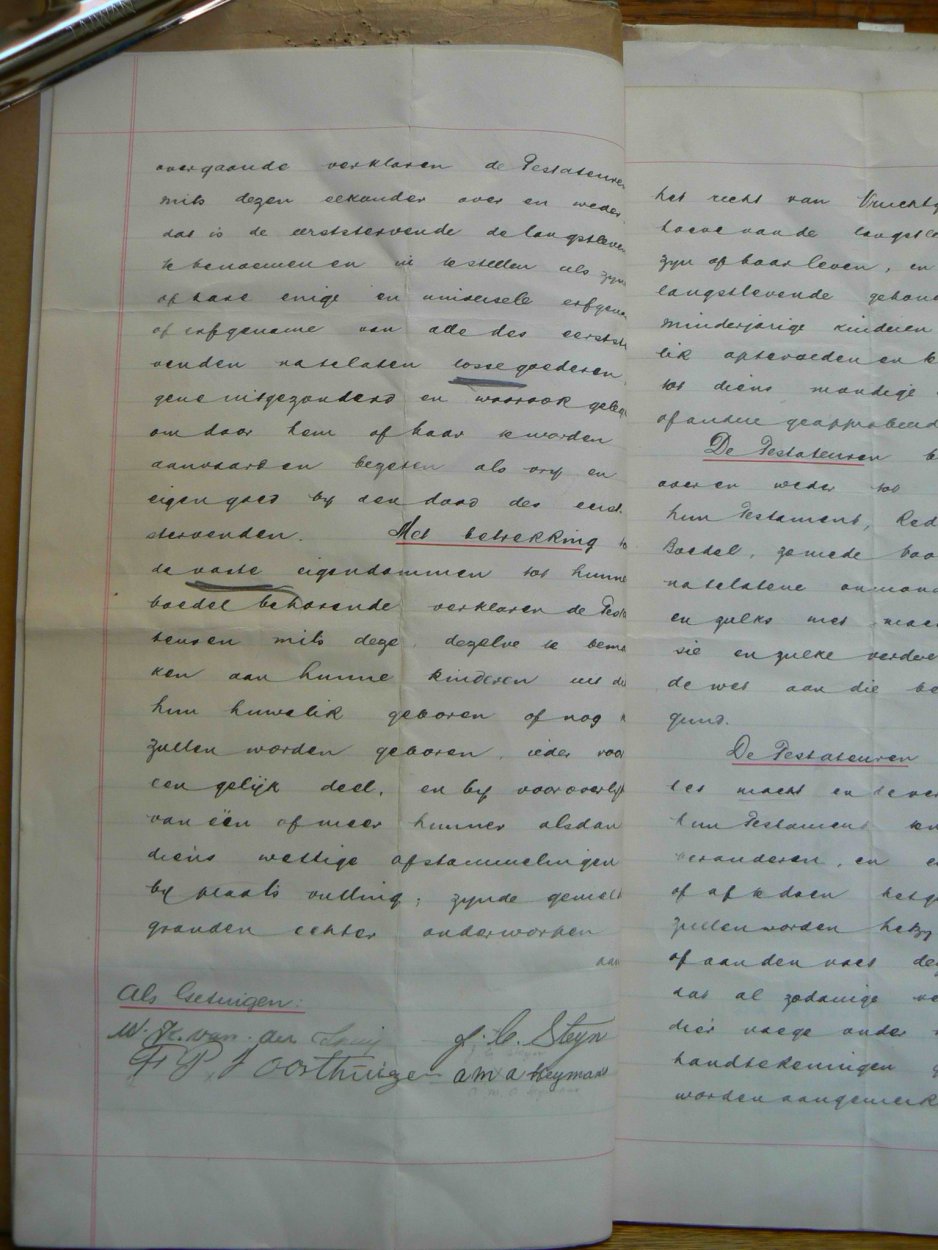 TAIWAN
overgaande verklaren de Testateuren
mits dezen elkander over en weder
dat is de eerststervende de langstleven
te benoemen en in te stellen als zyn
of hare enige en universele erfgena
of erfgename van alle des eerstst
venden natelaten losse goederen
gene uitgezonderd en waarook geleg
om door hem of haar te worden
aanvaard en bezeten als vry en
eigen goed by den dood des eerst
stervenden. Met betrekking to
de vaste eigendommen tot hunne
boedel behorende verklaren de Testa
teuren mits deze, dezelve te bema
ken aan hunne kinderen uit di
hun huwelik geboren of nog
zullen worden geboren, ieder voor
een gelijk deel, en by vooroverly
van één of meer hunner alsdan
diens wettige afstammelingen
by plaats vulling; zynde gemelde
gronden echter onderworpen
aan
Als Getuigen:
W. K. van der
J. C. Steyn
A M A Heymans
het recht van Vruchtg
hoeve van de langstle
zyn of haar leven, en
langstlevende gehoud
minderjarige kinderen
lik optevoeden en t
tot diens mondige
of andere geapprobeerd
De Testateuren b
over en weder tot
hun Testament, Red
Boedel, zomede voo
natelatene onmond
en zulks met mach
sie en zulke verdere
de wet aan die be
gund.
De Testateuren
tes macht en de ver
hun Testament te
veranderen, en
of af te doen hetg
zullen worden hetzy
of aan den voet dez
dat al zodanige ve
dier voege onder
handtekeningen g
worden aangemerk